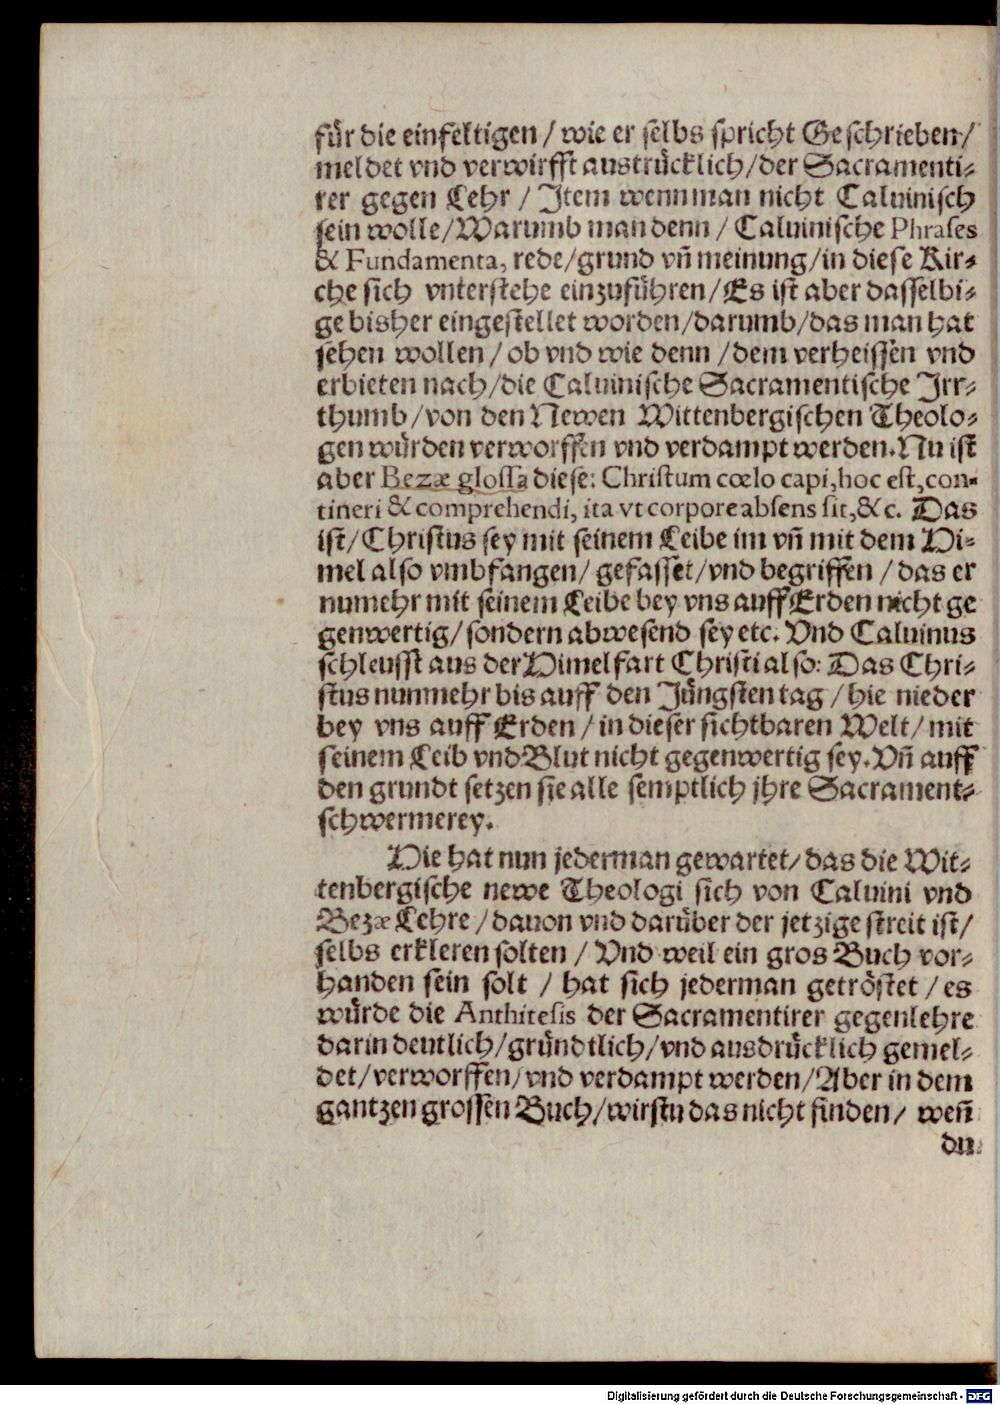 für die einfeltigen / wie er selbs spricht Geschrieben /
meldet vnd verwirfft austrücklich / der Sacramenti-
rer gegen Lehr / Item wenn man nicht Caluinisch
sein wolle / Warumb man denn / Caluinische Phrases
& Fundamenta, rede / grund vñ meinung / in diese Kir-
che sich vnterstehe einzuführen / Es ist aber dasselbi-
ge bisher eingestellet worden / darumb / das man hat
sehen wollen / ob vnd wie denn / dem verheissen vnd
erbieten nach / die Caluinische Sacramentische Irr-
thumb / von den Newen Wittenbergischen Theolo-
gen würden verworffen vnd verdampt werden. Nu ist
aber Bezæ glossa diese: Christum cœlo capi, hoc est, con-
tineri & comprehendi, ita vt corpore absens sit, &c. Das
ist / Christus sey mit seinem Leibe im vñ mit dem Hi-
mel also vmbfangen / gefasset / vnd begriffen / das er
numehr mit seinem Leibe bey vns auff Erden nicht ge
genwertig / sondern abwesend sey etc. Vnd Caluinus
schleusst aus der Himelfart Christi also: Das Chri-
stus nunmehr bis auff den Jüngsten tag / hie nieder
bey vns auff Erden / in dieser sichtbaren Welt / mit
seinem Leib vnd Blut nicht gegenwertig sey. Vñ auff
den grundt setzen sie alle semptlich jhre Sacrament-
schwermerey.
Hie hat nun jederman gewartet / das die Wit-
tenbergische newe Theologi sich von Caluini vnd
Bezæ Lehre / dauon vnd darüber der jetzige streit ist /
selbs erkleren solten / Vnd weil ein gros Buch vor-
handen sein solt / hat sich jederman getröstet / es
würde die Anthitesis der Sacramentirer gegenlehre
darin deutlich / gründtlich / vnd ausdrücklich gemel-
det / verworffen / vnd verdampt werden / Aber in dem
gantzen grossen Buch / wirstu das nicht finden / weñ
du
Digitalisierung gefördert durch die Deutsche Forschungsgemeinschaft - DFG